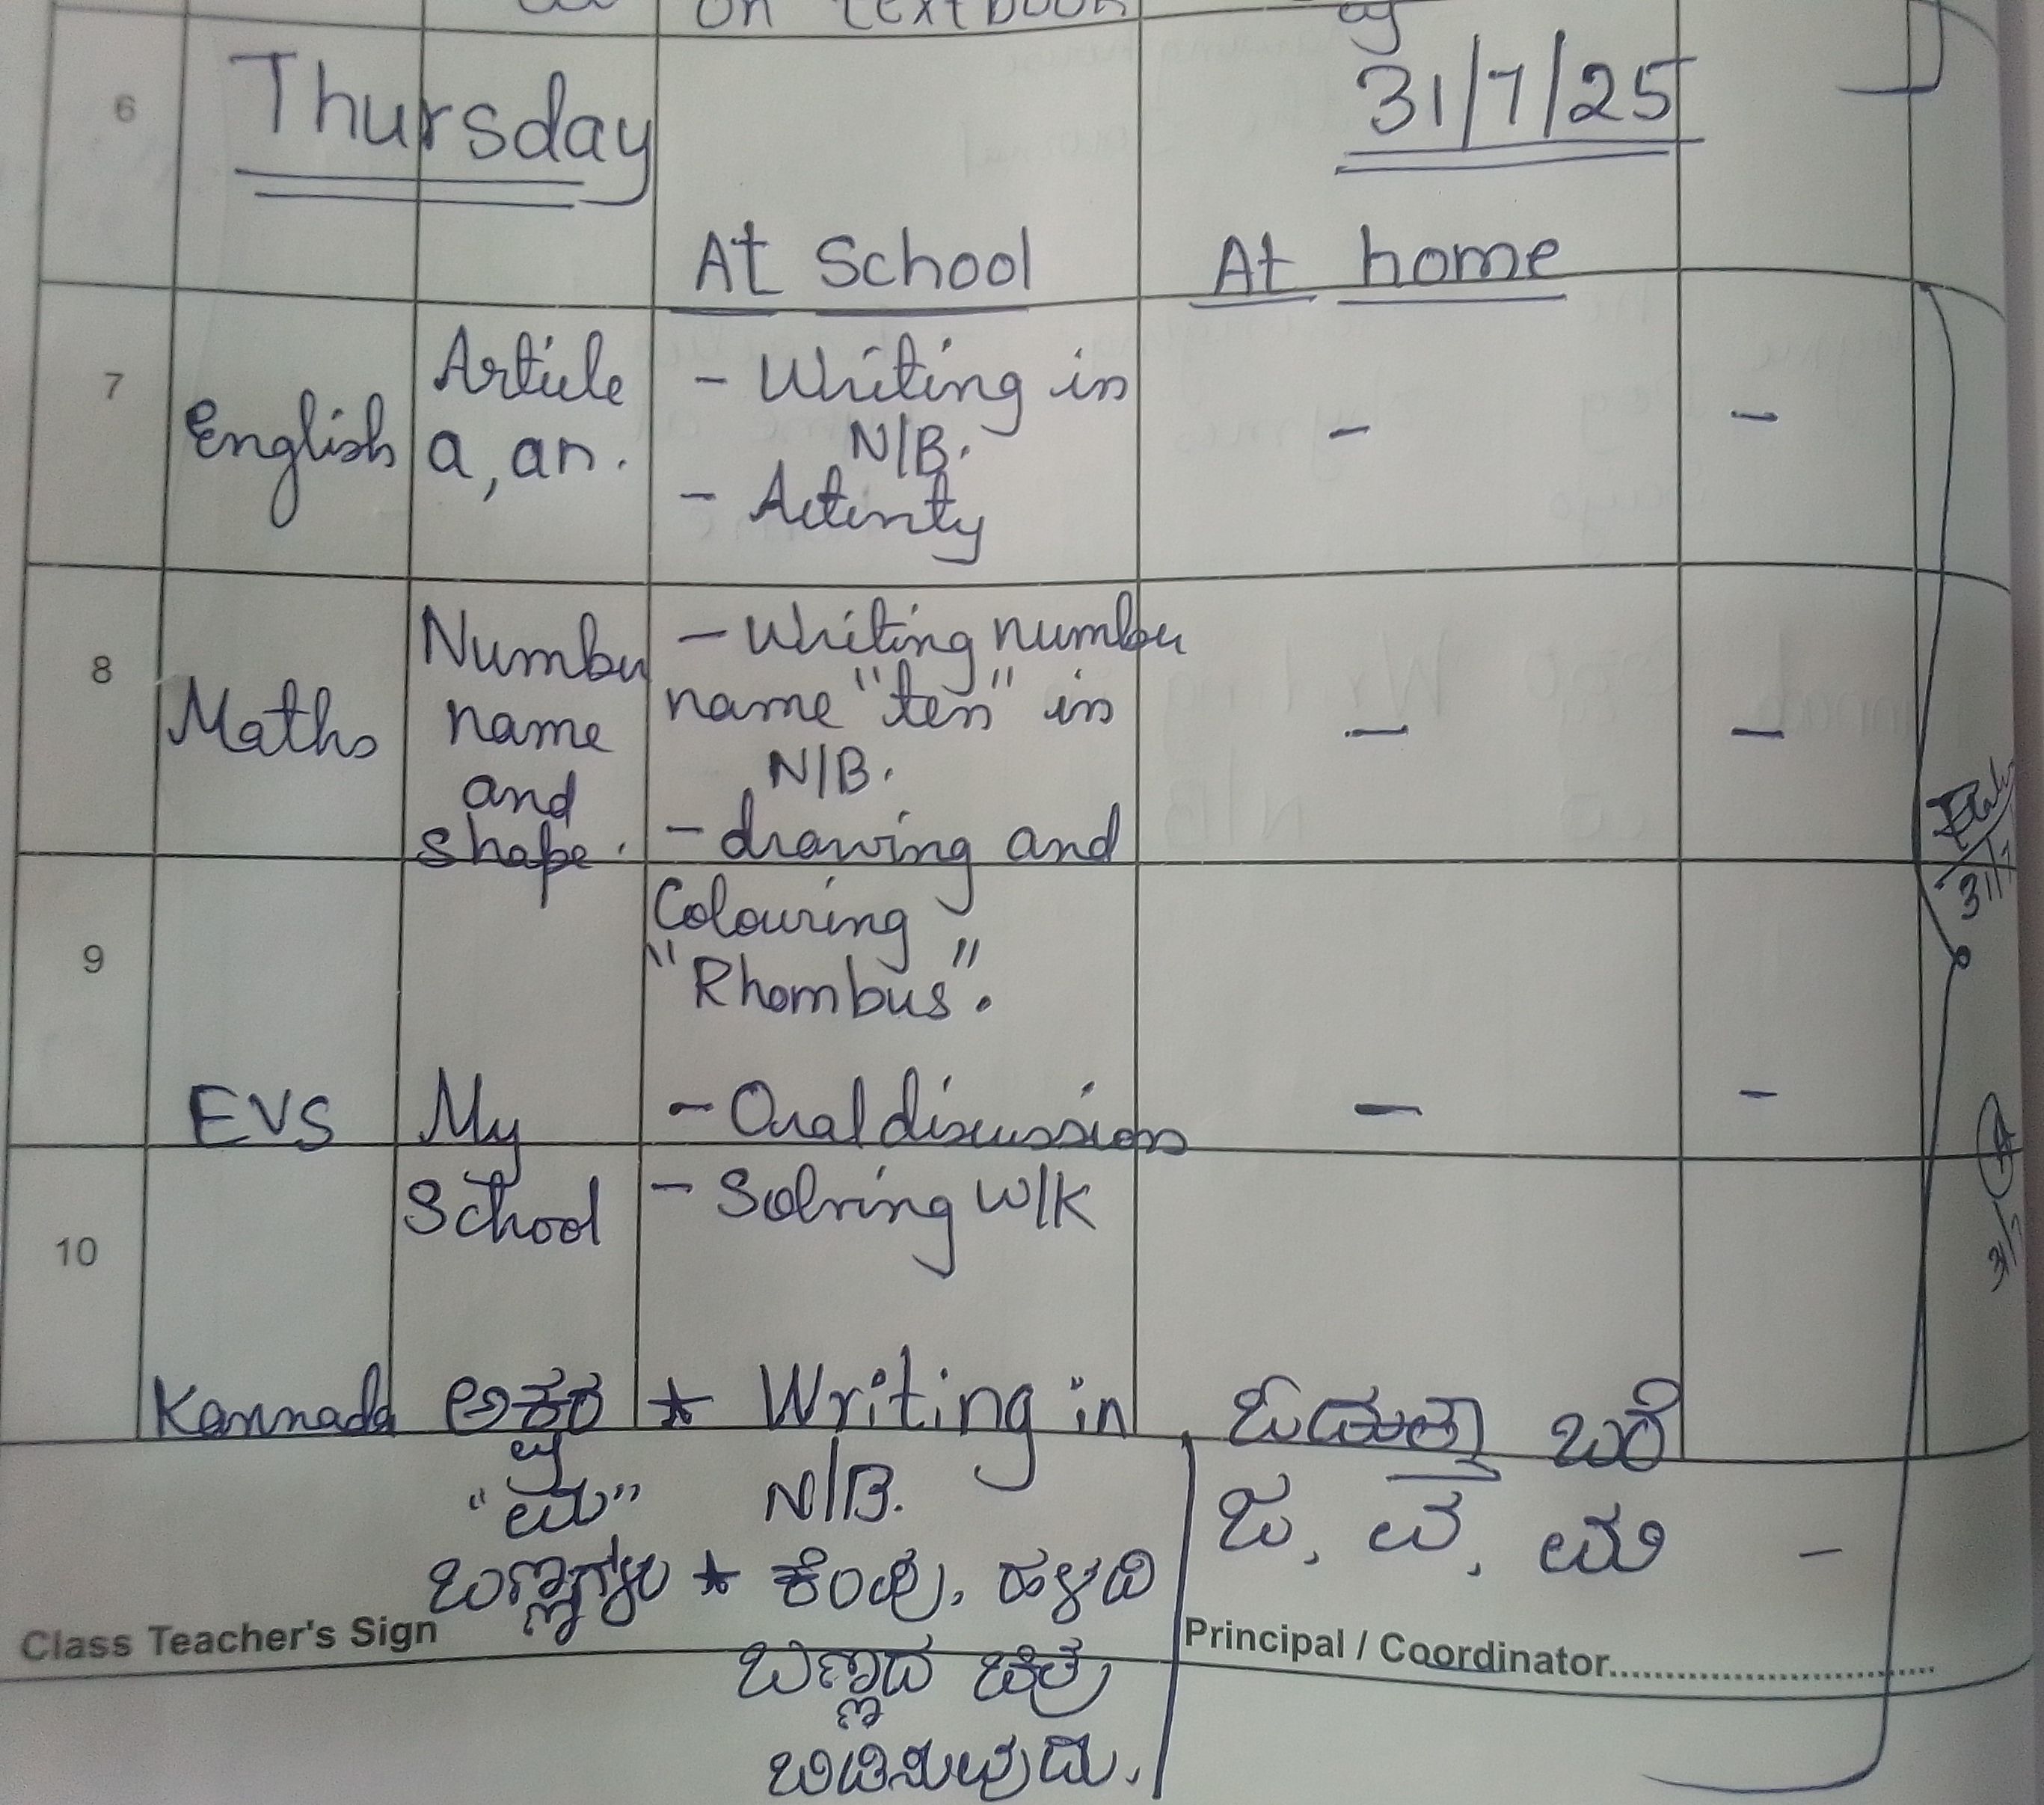 on textbook
6
Thursday
31/7/25
At School
At home
7
English
Article
a, an.
- Writing in
N/B.
- Activity
-
-
8
Maths
Number
name
and
shape.
- Writing number
name "ten" in
N/B.
- drawing and
Colouring
"Rhombus".
-
-
31/7
9
EVS
My
School
- Oral discussion
- Solving W/K
-
-
31/7
10
Kannada
ಅಕ್ಷರ
"ಮ"
ಬಣ್ಣಗಳು
★ Writing in
N/B.
★ ಕೆಂಪು, ಹಳದಿ
ಬಣ್ಣದ ಚಿತ್ರ
ಬಿಡಿಸುವುದು.
ಓದುತ್ತಾ ಬರೆ
ಜ, ವ, ಮ
-
Class Teacher's Sign
Principal / Coordinator